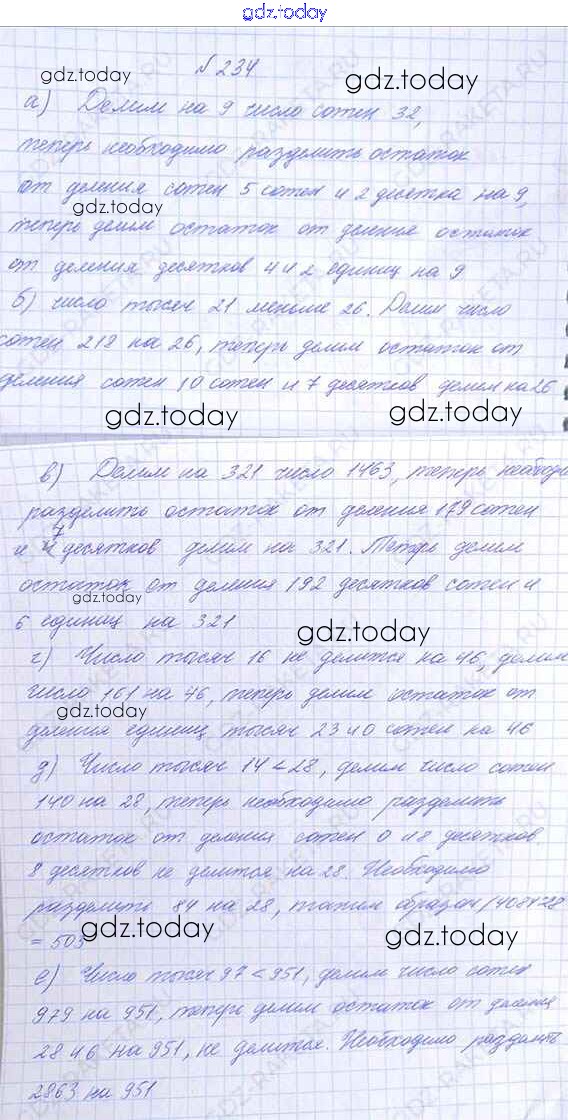 gdz.today
№ 234
gdz.today gdz.today
а) Делим на 9 число сотен 32,
теперь необходимо разделить остаток
от деления сотен 5 сотен и 2 десятка на 9,
gdz.today
теперь делим остаток от деления остаток
от деления десятков 4 и 2 единиц на 9
б) Число тысяч 21 меньше 26. Делим число
сотен 218 на 26, теперь делим остаток от
деления сотен 10 сотен и 7 десятков делим на 26
gdz.today gdz.today
в) Делим на 321 число 1463, теперь необходи
разделить остаток от деления 179 сотен
и 7 десятков делим на 321. Теперь делим
остаток от деления 192 десятков сотен и
gdz.today
6 единиц на 321
gdz.today
г) Число тысяч 16 не делится на 46, делим
число 161 на 46, теперь делим остаток от
gdz.today
деления единиц тысяч 23 и 0 сотен на 46
д) Число тысяч 14 < 28, делим число сотен
140 на 28, теперь необходимо разделить
остаток от деления сотен 0 и 8 десятков.
8 десятков не делится на 28. Необходимо
разделить 84 на 28, таким образом 14084:28
= 503
gdz.today gdz.today
е) Число тысяч 97 < 951, делим число сотен
979 на 951, теперь делим остаток от деления
28 и 6 на 951, не делится. Необходимо разделить
2863 на 951